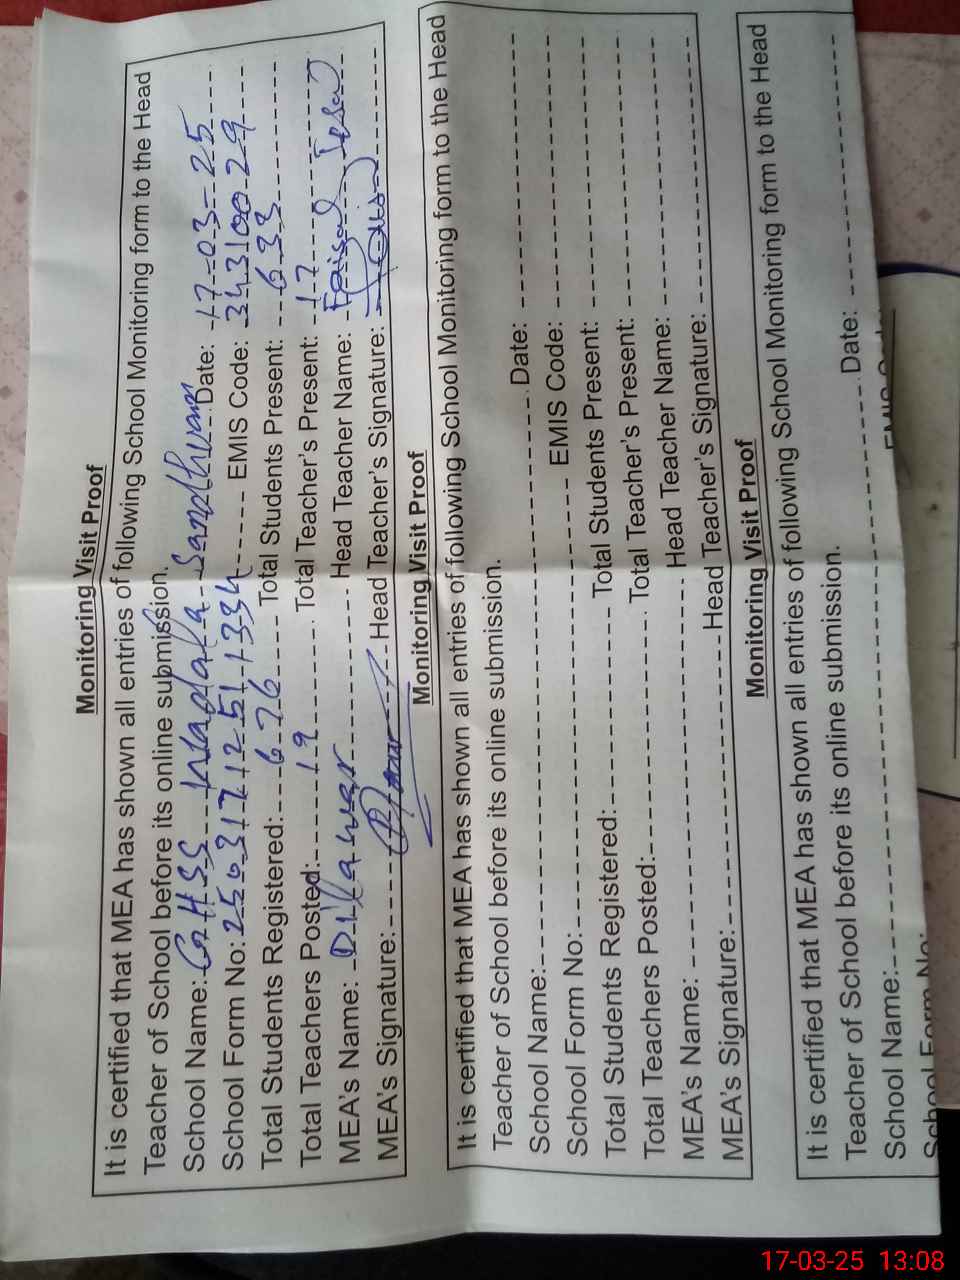 Monitoring Visit Proof
It is certified that MEA has shown all entries of following School Monitoring form to the Head
Teacher of School before its online submission.
School Name: GHSS Madala Sandhwan Date: 17-03-25
School Form No: 250317125 1334 EMIS Code: 34310029
Total Students Registered: 676 Total Students Present: 633
Total Teachers Posted: 19 Total Teacher's Present: 17
MEA's Name: Dilawar Head Teacher Name: Faisal
MEA's Signature: Head Teacher's Signature:
Monitoring Visit Proof
It is certified that MEA has shown all entries of following School Monitoring form to the Head
Teacher of School before its online submission.
School Name: Date:
School Form No: EMIS Code:
Total Students Registered: Total Students Present:
Total Teachers Posted: Total Teacher's Present:
MEA's Name: Head Teacher Name:
MEA's Signature: Head Teacher's Signature:
Monitoring Visit Proof
It is certified that MEA has shown all entries of following School Monitoring form to the Head
Teacher of School before its online submission.
School Name: Date:
School Form No:
17-03-25 13:08